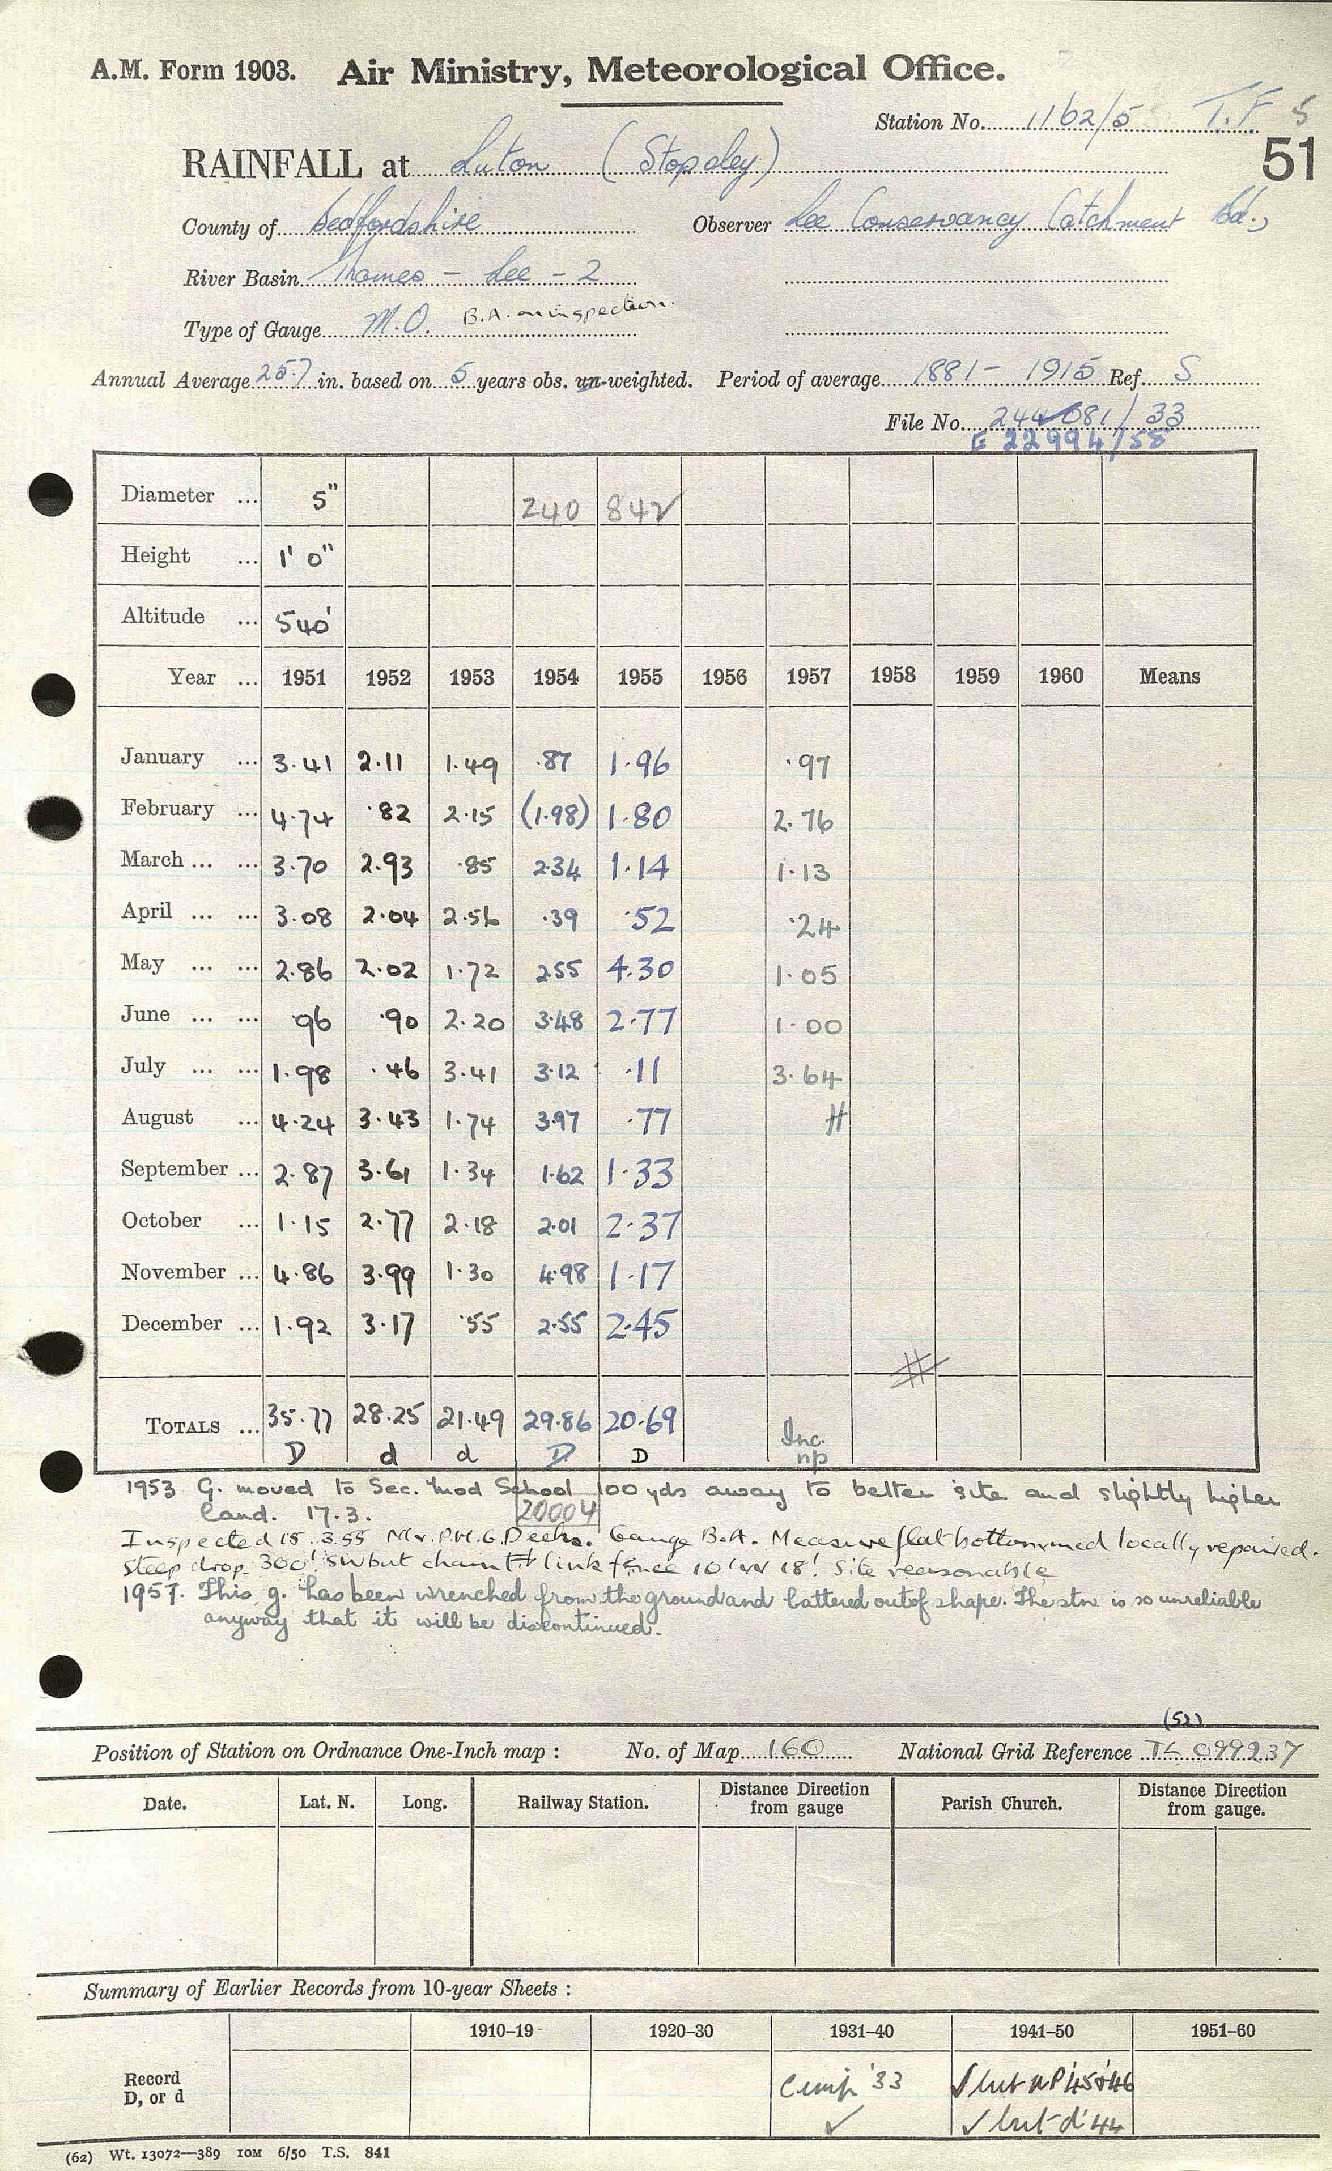 A.M. Form 1903. Air Ministry, Meteorological Office.
Station No. 1162/5 T.F 5
51
RAINFALL at Luton (Stopsley)
County of Bedfordshire Observer Lee Conservancy Catchment Bd.,
River Basin Thames - Lee - 2
Type of Gauge M.O. B.A. on inspection.
Annual Average 25.7 in. based on 5 years obs. un-weighted. Period of average 1881 - 1915 Ref. S
File No. 244081/33
G 22994/58
Diameter ... 5" 240 842
Height ... 1' 0"
Altitude ... 540'
Year ... 1951 1952 1953 1954 1955 1956 1957 1958 1959 1960 Means
January ... 3.41 2.11 1.49 .87 1.96 .97
February ... 4.74 .82 2.15 (1.98) 1.80 2.76
March ... ... 3.70 2.93 .85 2.34 1.14 1.13
April ... ... 3.08 2.04 2.56 .39 .52 .24
May ... ... 2.86 2.02 1.72 2.55 4.30 1.05
June ... ... .96 .90 2.20 3.48 2.77 1.00
July ... ... 1.98 .46 3.41 3.12 .11 3.64
August ... 4.24 3.43 1.74 3.97 .77 #
September ... 2.87 3.61 1.34 1.62 1.33
October ... 1.15 2.77 2.18 2.01 2.37
November ... 4.86 3.99 1.30 4.98 1.17
December ... 1.92 3.17 .55 2.55 2.45
#
TOTALS ... 35.77 28.25 21.49 29.86 20.69 Inc.
D d d D D np
1953 G. moved to Sec. Mod School 100 yds away to better site and slightly higher
land. 17.3. 20004
Inspected 18.3.55 Mr. P.H.G. Deeks. Gauge B.A. Measure flat bottommed locally repaired.
Steep drop 300' SW but chain link fence 10' NW 18'. Site reasonable
1957. This g. has been wrenched from the ground and battered out of shape. The stn is so unreliable
anyway that it will be discontinued.
(52)
Position of Station on Ordnance One-Inch map : No. of Map 160 National Grid Reference TL 099237
Date. Lat. N. Long. Railway Station. Distance Direction from gauge Parish Church. Distance Direction from gauge.
Summary of Earlier Records from 10-year Sheets :
1910–19 1920–30 1931–40 1941–50 1951–60
Record
D, or d
'33 ✓ but np '45 & '46
✓ ✓ but d '44
(62) Wt. 13072—389 10M 6/50 T.S. 841